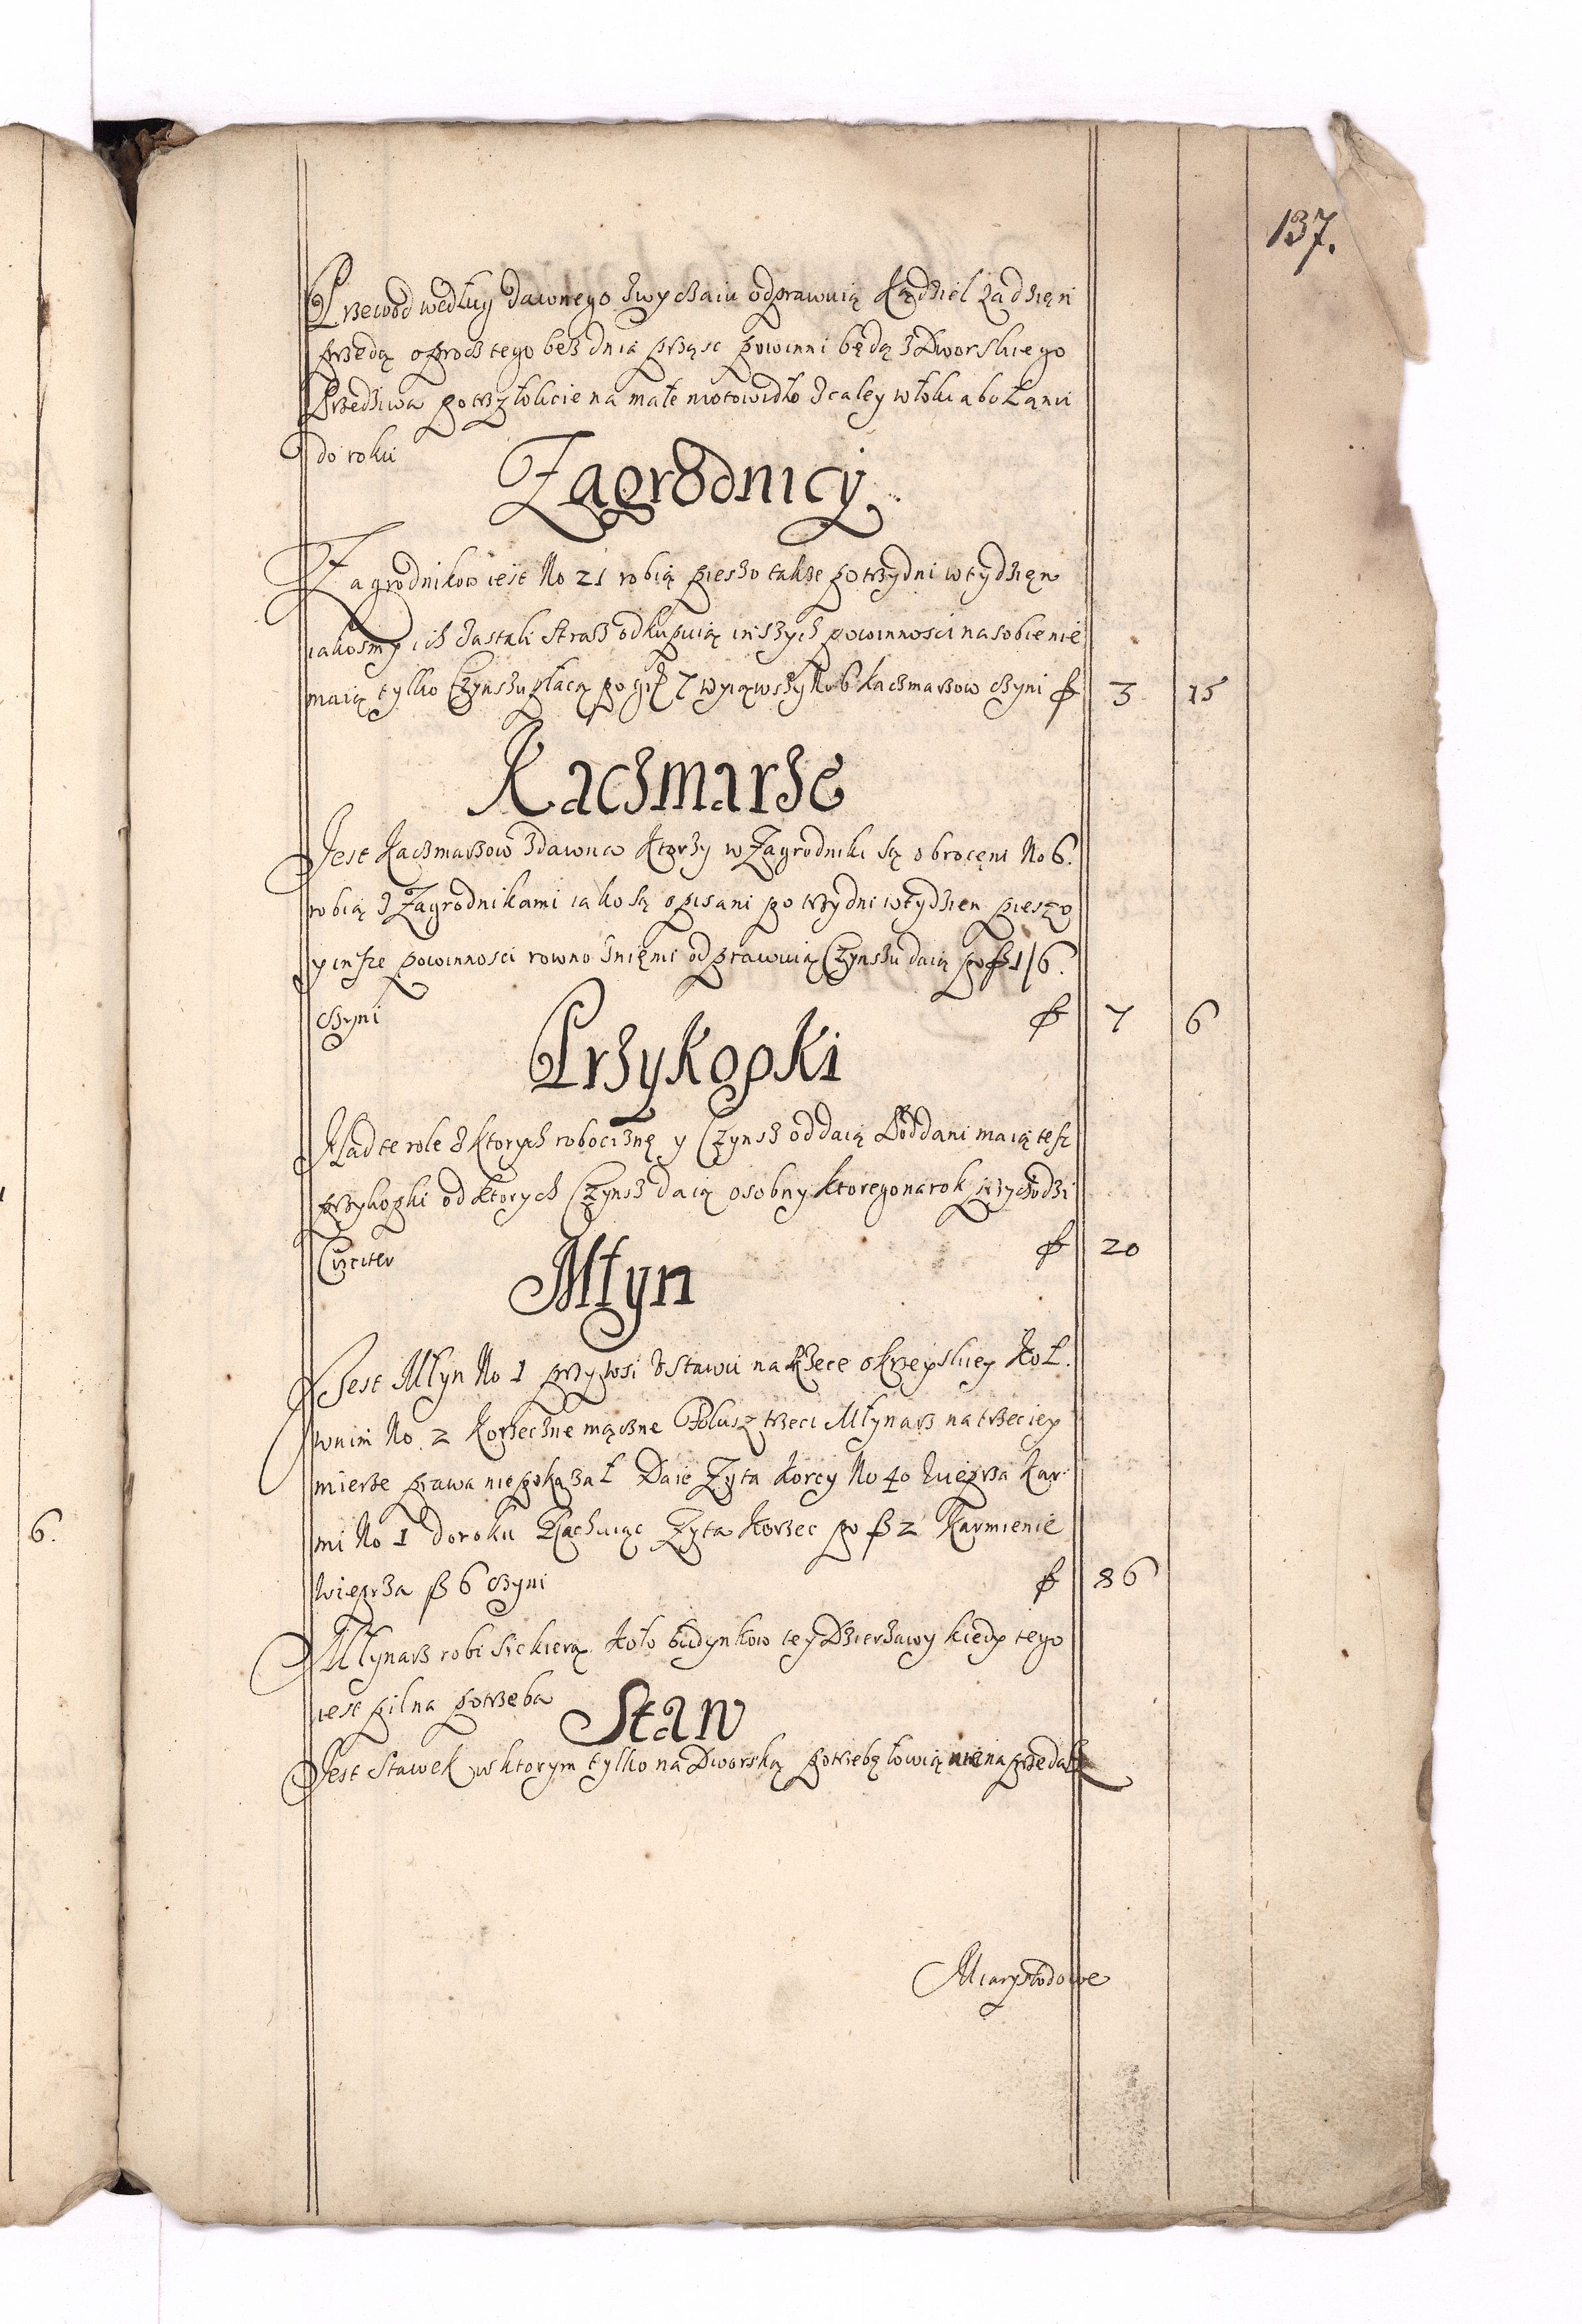 137.
Przewod według dawnego zwyczaiu odprawuią Kądziel za dzięń
przędą oprocz tego bez dnia prząsc powinni będą z Dworskiego
Przędziwa po trzy łokcie na małe motowidło z całey włoki abo Łanu
do roku
Zagrodnicy
Zagrodnikow iest No 21 robią pieszo także po trzy dni w tydzięn
iakosmy ich zastali Straz odkupuią inszych powinnosci na sobie nie
maią tylko Czynszu płacą po g 7 wyiąwszy No 6 kaczmarzow czyni f 3 15
Kaczmarze
Jest Kaczmarzow zdawna Ktorzy w Zagrodniki są obroceni No 6.
robią z Zagrodnikami iako są opisani po trzy dni w tydzien pieszo
y insze powinnosci rowno z niemi odprawuią Czynszu daią po f 1/6.
czyni f 7 6
Przykopki
Nad te role z ktorych robociznę y Czynsz oddaią Poddani maią tesz
przykopki od Ktorych Czynsz daią osobny ktorego na rok przychodzi
Circiter f 20
Młyn
Jest Młyn No 1 przy wsi z Stawu na Rzece okrzeyskiey Koł
w nim No 2 Korzeczne mączne Polusz trzeci Młynarz na trzeciey
mierze prawa nie pokazał Daie Zyta korcy No 40 Wieprza Kar
mi No 1 do roku Rachuiąc Zyta Korzec po f 2 Karmienie
wieprza f 6 czyni f 86
Młynarz robi siekierą koło budynkow tey Dzierzawy kiedy tego
iest pilna potrzeba
Staw
Jest Stawek w ktorym tylko na Dworską potrzebę łowią nie na przedasz
Miary słodowe
6.